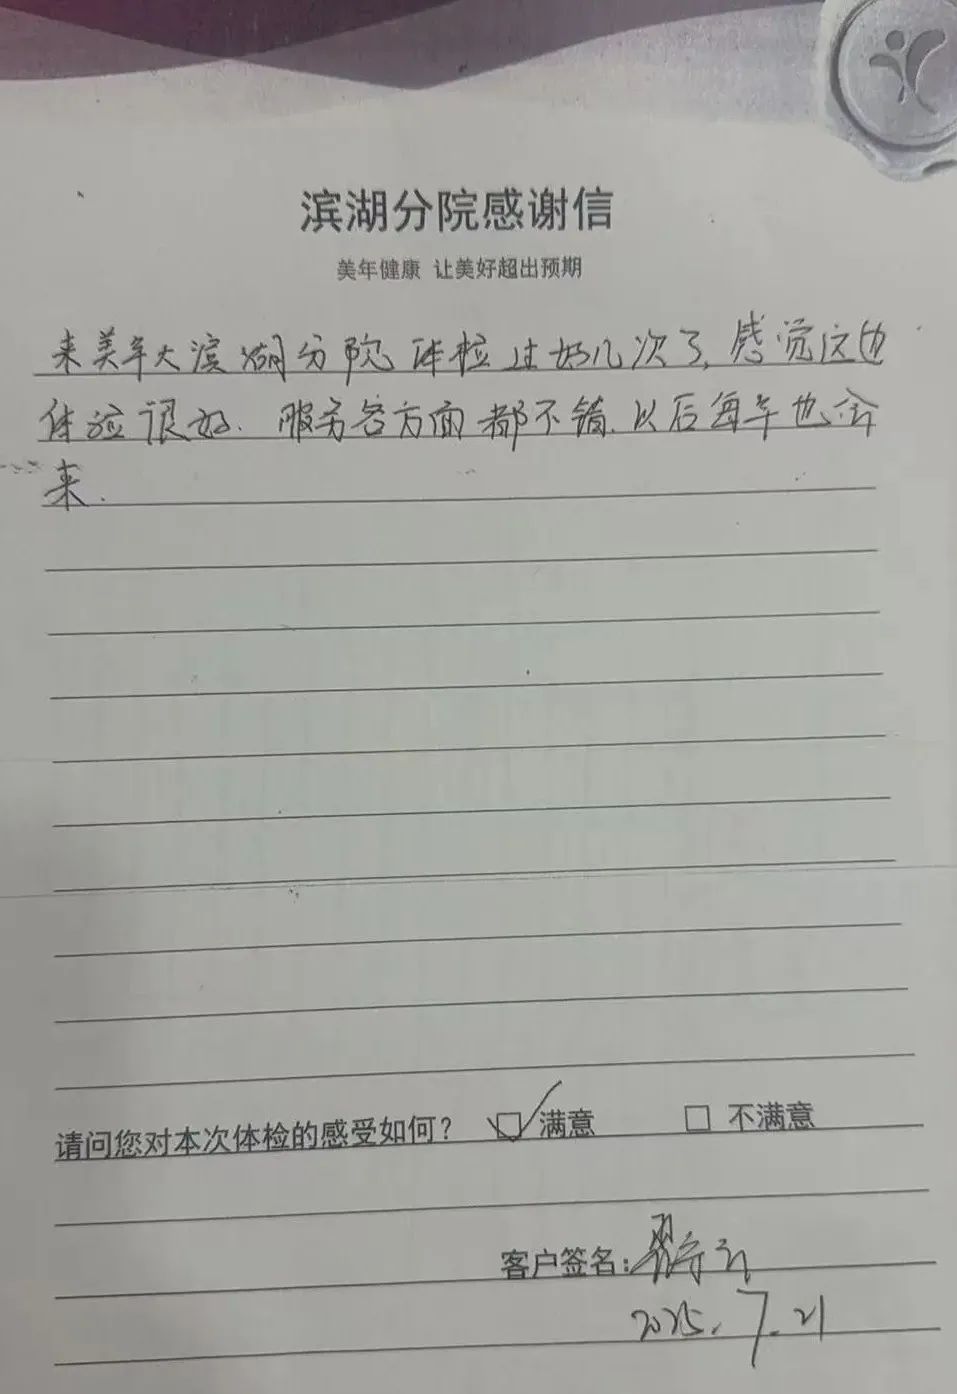 滨湖分院感谢信
美年健康 让美好超出预期
来美年大滨湖分院体检过好几次了,感觉这边
体验很好.服务各方面都不错.以后每年也会
来.
请问您对本次体检的感受如何? 满意 不满意
客户签名:
2025.7.21